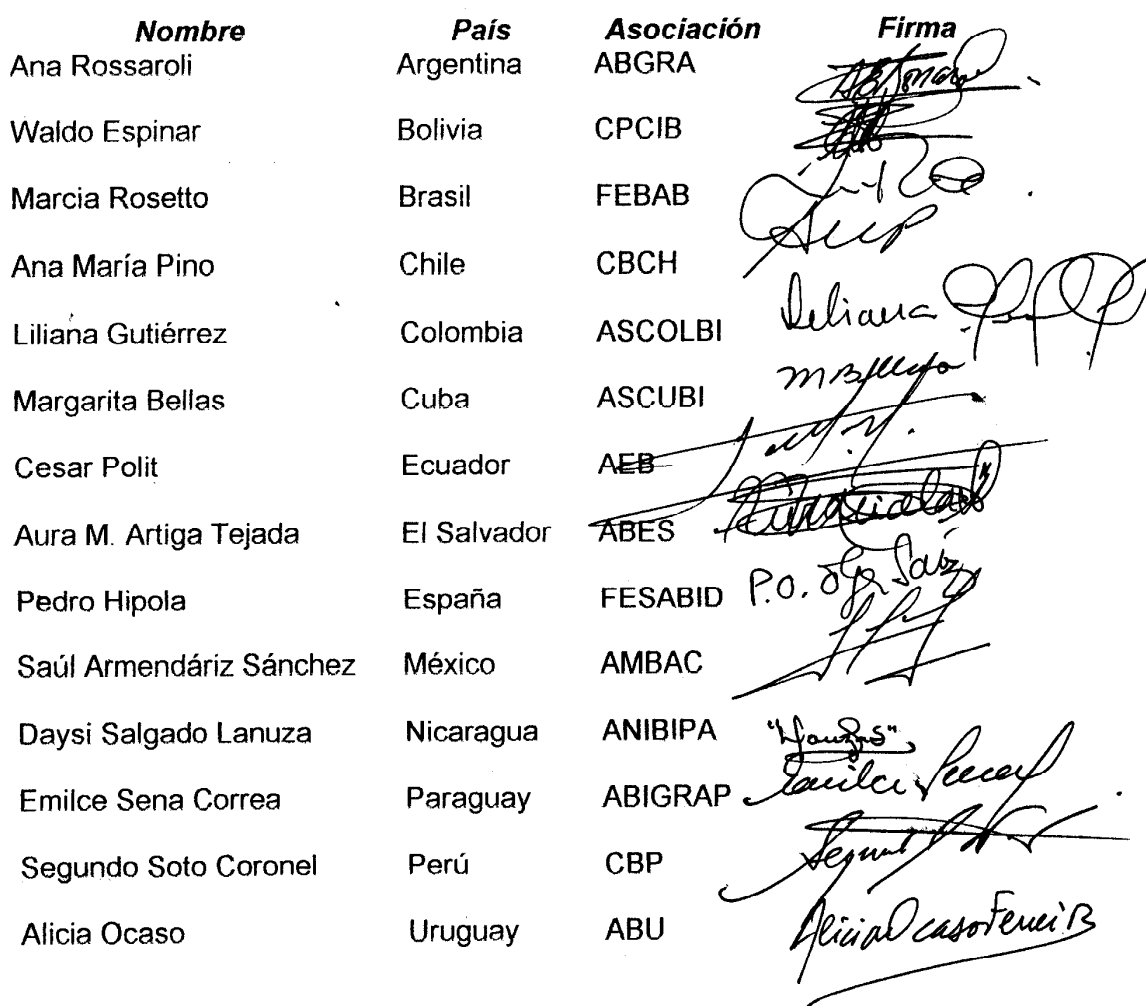 Nombre País Asociación Firma
Ana Rossaroli Argentina ABGRA
Waldo Espinar Bolivia CPCIB
Marcia Rosetto Brasil FEBAB
Ana María Pino Chile CBCH
Liliana Gutiérrez Colombia ASCOLBI Liliana
Margarita Bellas Cuba ASCUBI
Cesar Polit Ecuador AEB
Aura M. Artiga Tejada El Salvador ABES
Pedro Hipola España FESABID P.O.
Saúl Armendáriz Sánchez México AMBAC
Daysi Salgado Lanuza Nicaragua ANIBIPA
Emilce Sena Correa Paraguay ABIGRAP Emilce
Segundo Soto Coronel Perú CBP Segundo
Alicia Ocaso Uruguay ABU Alicia Ocaso Ferreira